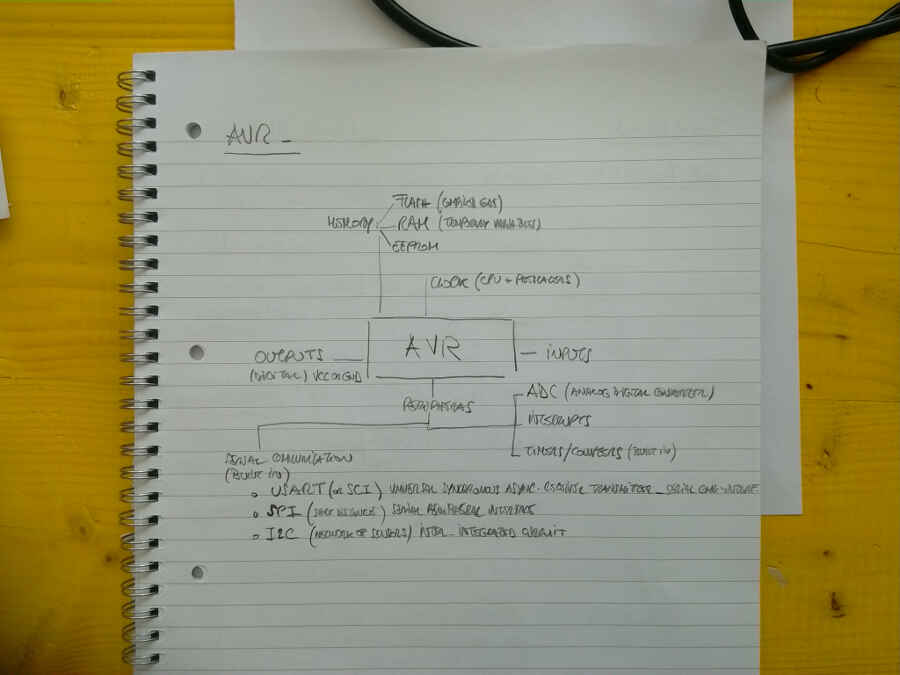 AVR -
FLASH
MEMORY
RAM (TEMPORARY VARIABLES)
EEPROM
CLOCK (CPU + PERIPHERALS)
AVR
OUTPUTS
INPUTS
(DIGITAL) VCC OR GND
ADC (ANALOG DIGITAL CONVERTER)
PERIPHERALS
INTERRUPTS
TIMERS/COUNTERS (BUILT IN)
SERIAL COMMUNICATION
(BUILT IN)
USART (OR SCI) UNIVERSAL SYNCHRONOUS ASYNC. RECEIVER TRANSMITTER - SERIAL COMM. INTERFACE
SPI (SHORT DISTANCES) SERIAL PERIPHERAL INTERFACE
I2C (NETWORK OF SENSORS) INTER - INTEGRATED CIRCUIT